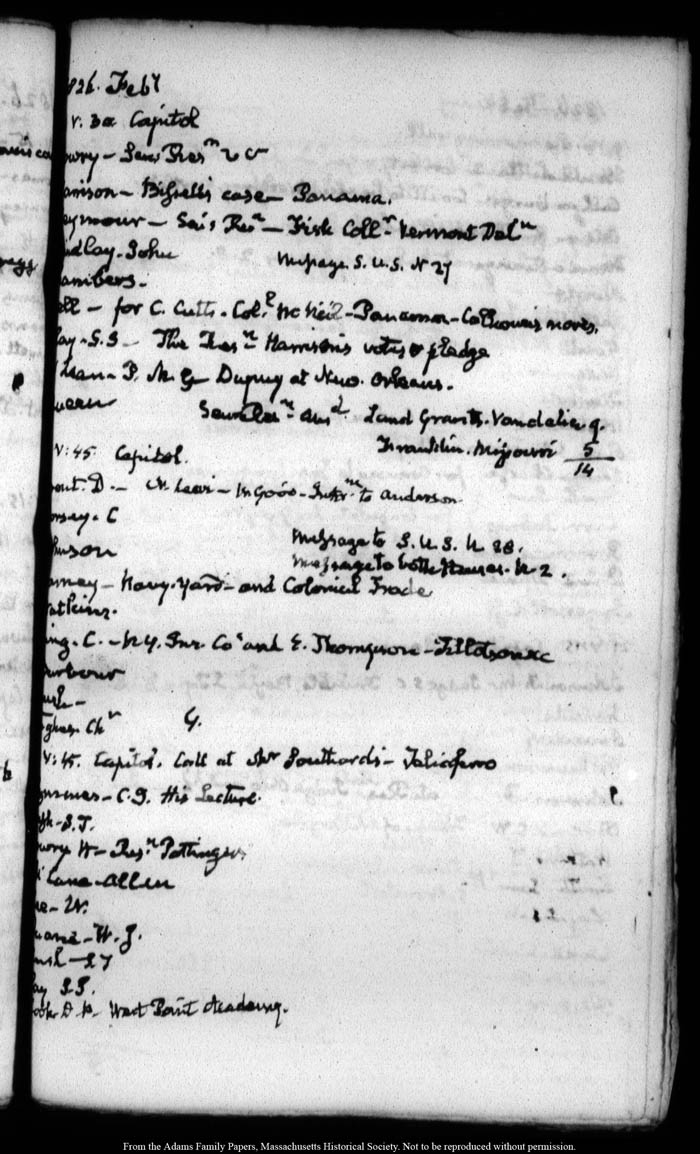 826. Feb.y
V: 30 Capitol
owry – Sen. Res.n
arrison – Bissell's case – Panama.
eymour – Sen. Res.n – Fisk Coll.r Vermont Del.n
indlay. John
Message S. U. S. N 27
ambers –
ell – for C. Cutts. Col.l McNeil – Panama – Calhoun's moves.
lay – S.S – The Res.n Harrison's votes & pledge
Lean – P. M. G – Dupuy at New. Orleans.
ueen
Sen. Res.n Land Grants. Vandalia 9.
Franklin. Missouri 5
14
V: 45. Capitol.
to Anderson
orsey. C
hnson
Message to S. U. S. N 28.
Message to both Houses. N 2.
arney – Navy-Yard – and Colonial Trade
atkins.
ing. C. – N.Y. Insr. Co. and E. Thompson – Tillotson &c
arbour
ush –
ughes. Ch.r
4.
V: 45. Capitol. Call at Mr Southard's – Taliaferro
C. I. His Lecture.
S. T.
owry W – Res.n Pottinger
Lane – Allen
W.
uane – W. J.
ush –
lay S. S.
ook D. P. West Point Academy.
From the Adams Family Papers, Massachusetts Historical Society. Not to be reproduced without permission.